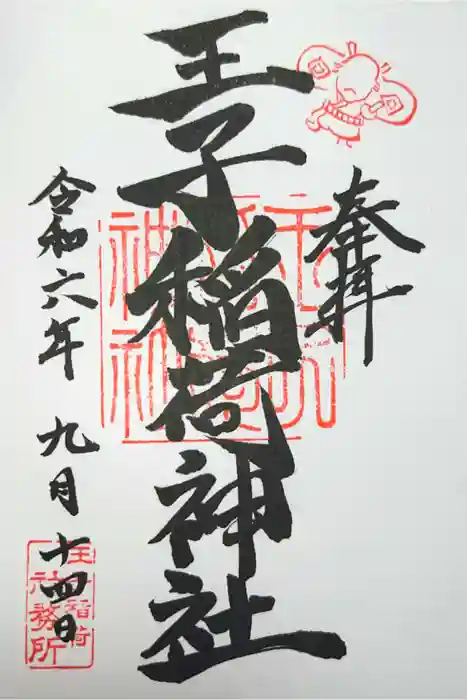 奉拝
王子稲荷神社
令和六年九月十四日
王子稲荷
社務所